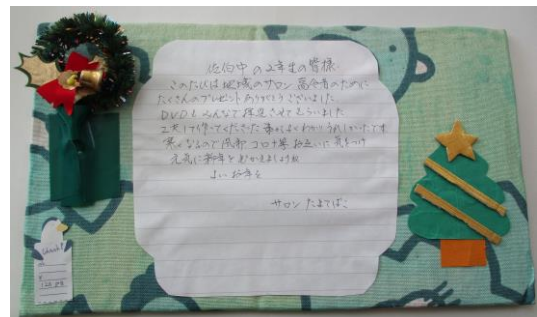 佐伯中の2年生の皆様
このたびは地域のサロン高令者のために
たくさんのプレゼントありがとうございました
DVDもみんなで拝見させてもらいました
工夫して作ってくださった事がよくわかりうれしかったです
寒くなるので風邪コロナ等お互いに気をつけ
元気に新年をむかえましょうね
よいお年を
サロンたまてばこ